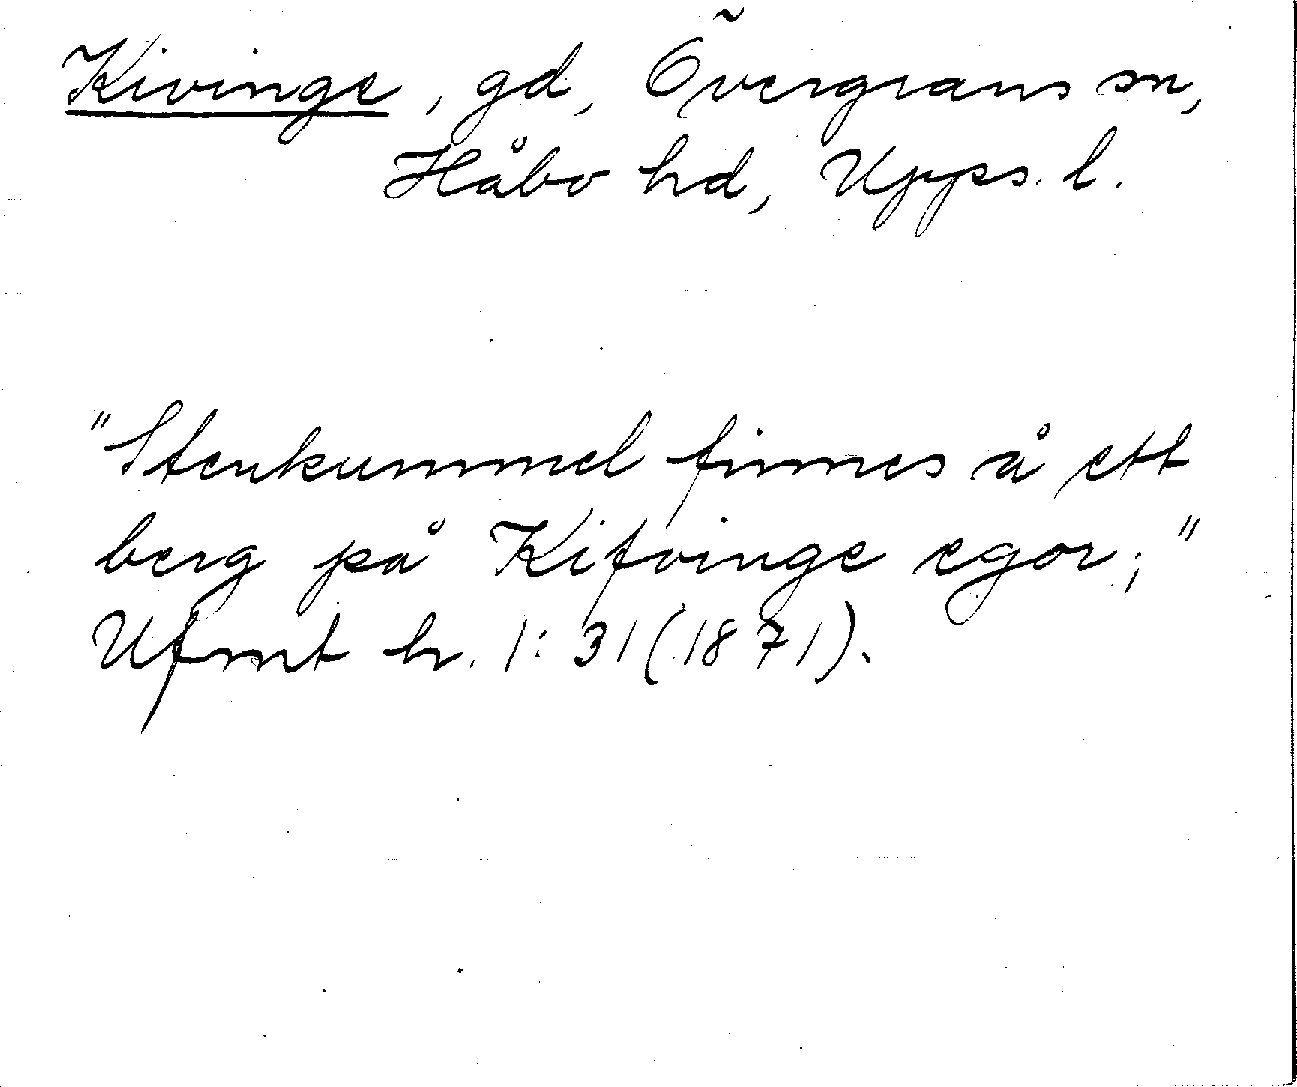 Kivinge, gd, Övergrans sn,
Håbo hd, Upps. l.
"Stenkummel finnes å ett
berg på Kifvinge egor;"
Ufmt h. 1: 31 (1871).